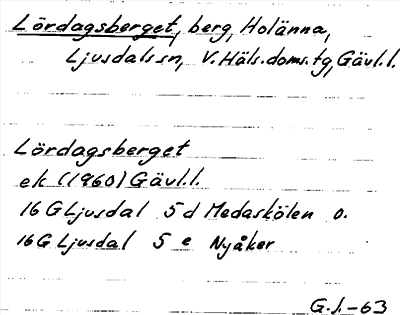 Lördagsberget, berg, Holänna,
Ljusdals sn, V. Häls. doms. tg, Gävl.l.
Lördagsberget
ek (1960) Gävl.l.
16 G Ljusdal 5 d Medaskölen o.
16 G Ljusdal 5 e Nyåker
G.J.-63